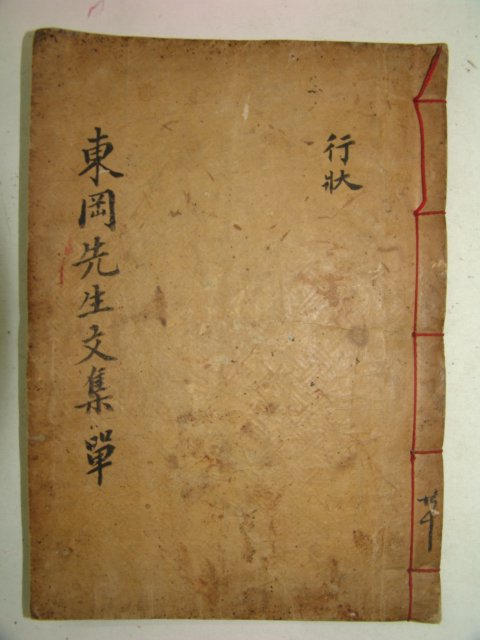 東岡先生文集 單
行狀